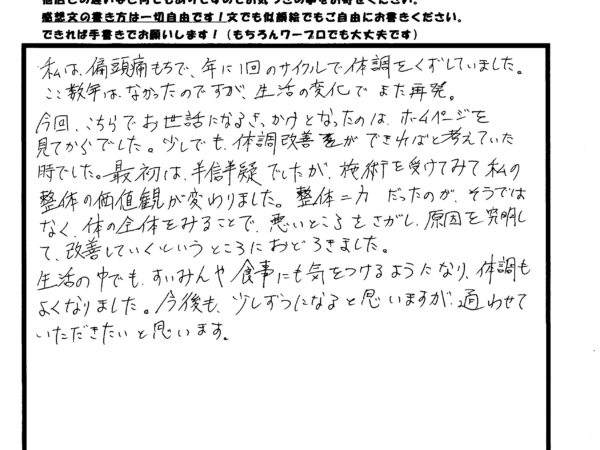 感想文の書き方は一切自由です！文でも似顔絵でもご自由にお書きください。
できれば手書きでお願いします！（もちろんワープロでも大丈夫です）
私は、偏頭痛もちで、年に1回のサイクルで体調をくずしていました。
ここ数年は、なかったのですが、生活の変化でまた再発。
今回、こちらでお世話になるき、かけとなったのは、ホームページを
見てからでした。少しでも、体調改善ができればと考えていた
時でした。最初は、半信半疑でしたが、施術を受けてみて私の
整体の価値観が変わりました。整体＝力だったのが、そうでは
なく、体の全体をみることで、悪いところをさがし、原因を究明し
て、改善していくというところにおどろきました。
生活の中でも、すいみんや食事にも気をつけるようになり、体調も
よくなりました。今後も、少しずつになると思いますが、通わせて
いただきたいと思います。